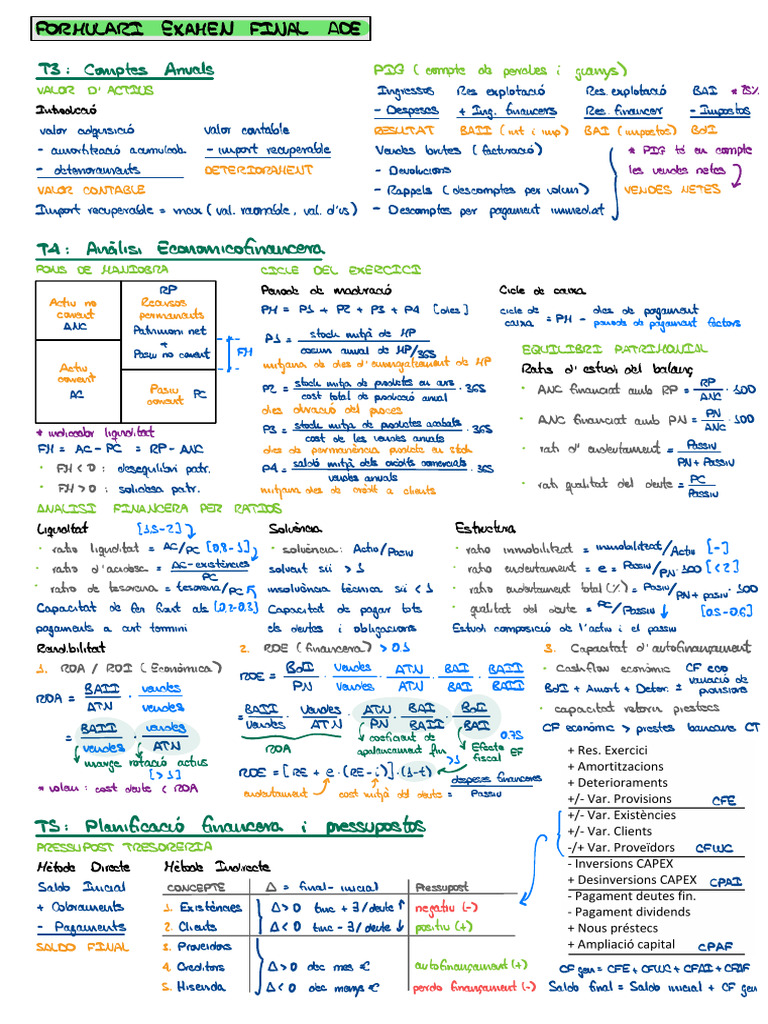 FORMULARI EXAMEN FINAL ADE
T3: Comptes Anuals
VALOR D'ACTIUS
Introducció
valor adquisició
- amortització acumulada
- deterioraments
VALOR COMPTABLE
valor comptable
- import recuperable
DETERIORAMENT
Import recuperable = max (val. raonable, val. d'ús)
PIG (compte de pèrdues i guanys)
Ingressos
- Despeses
RESULTAT
Res. explotació
+ Ing. financers
BAII (int i imp)
Res. explotació
Res. financer
BAI (impostos)
BAI * 75%
- Impostos
BDI
Vendes brutes (facturació)
- Devolucions
- Rappels (descomptes per volum)
- Descomptes per pagament immediat
* PIG té en compte
les vendes netes
VENDES NETES
T4: Anàlisi Economicofinancera
FONS DE MANIOBRA
Actiu no
corrent
ANC
Actiu
corrent
AC
RP
Recursos
permanents
Patrimoni net
+
Passiu no corrent
Passiu
corrent PC
FM
* indicador liquiditat
FM = AC - PC = RP - ANC
· FM < 0 : desequilibri patr.
· FM > 0 : solidesa patr.
CICLE DEL EXERCICI
Període de maduració
PM = P1 + P2 + P3 + P4 [dies]
P1 = stock mitjà de MP / consum anual de MP/365
mitjana de dies d'emmagatzament de MP
P2 = stock mitjà de productes en curs / cost total de producció anual · 365
dies duració del procés
P3 = stock mitjà de productes acabats / cost de les vendes anuals · 365
dies de permanència producte en stock
P4 = saldo mitjà dels crèdits comercials / vendes anuals · 365
mitjana dies de crèdit a clients
Cicle de caixa
cicle de caixa = PM - dies de pagament
període de pagament factors
EQUILIBRI PATRIMONIAL
Ratis d'estudi del balanç
· ANC finançat amb RP = RP/ANC · 100
· ANC finançat amb PN = PN/ANC · 100
· rati d'endeutament = Passiu / PN + Passiu
· rati qualitat del deute = PC / Passiu
ANALISI FINANCERA PER RATIOS
Liquiditat [1,5-2]
· ratio liquiditat = AC/PC [0,8-1]
· ratio d'acidesa = AC-existències / PC
· ratio de tresoreria = tresoreria/PC
Capacitat de fer front als [0,2-0,3]
pagaments a curt termini
Solvència
· solvència: Actiu/Passiu
solvent sii > 1
insolvència tècnica sii < 1
Capacitat de pagar tots
els deutes i obligacions
Estructura
· ratio immobilitzat = immobilitzat/Actiu [-]
· ratio endeutament = e = Passiu/PN · 100 [<2]
· ratio endeutament total (%) = Passiu/PN + passiu · 100
· qualitat del deute = PC/Passiu ↓ [0.5-0.6]
Estudi composició de l'actiu i el passiu
Rendibilitat
1. ROA / ROI (Econòmica)
ROA = BAII/ATN · vendes/vendes
= BAII/vendes · vendes/ATN
marge rotació actius
[>1]
* volem: cost deute < ROA
2. ROE (financera) > 0.1
ROE = BDI/PN · Vendes/Vendes · ATN/ATN · BAI/BAI · BAII/BAII
= BAII/Vendes · Vendes/ATN · ATN/PN · BAI/BAII · BDI/BAI
ROA
coeficient de
apalancament fin
>1
Efecte
fiscal EF
0.75
ROE = [RE + e · (RE-i)] · (1-t)
endeutament
cost mitjà del deute = despeses financeres / Passiu
3. Capacitat d'autofinançament
· Cashflow econòmic CF eco
BDI + Amort + Deter. ± variació de provisions
· capacitat retorn préstecs
CF econòmic > préstecs bancaris CT
+ Res. Exercici
+ Amortitzacions
+ Deterioraments
+/- Var. Provisions CFE
+/- Var. Existències
+/- Var. Clients
-/+ Var. Proveïdors CFWC
- Inversions CAPEX
+ Desinversions CAPEX CPAI
- Pagament deutes fin.
- Pagament dividends
+ Nous préstecs
+ Ampliació capital CPAF
CF gen = CFE + CFWC + CFAI + CFAF
Saldo final = Saldo inicial + CF gen
T5: Planificació financera i pressupostos
PRESSUPOST TRESORERIA
Mètode Directe
Saldo Inicial
+ Cobraments
- Pagaments
SALDO FINAL
Mètode Indirecte
CONCEPTE Δ = final - inicial Pressupost
1. Existències Δ>0 tinc + 3/deute ↑ negatiu (-)
2. Clients Δ<0 tinc - 3/deute ↓ positiu (+)
3. Proveïdors
4. Creditors Δ>0 dec més € autofinançament (+)
5. Hisenda Δ<0 dec menys € perdo finançament (-)